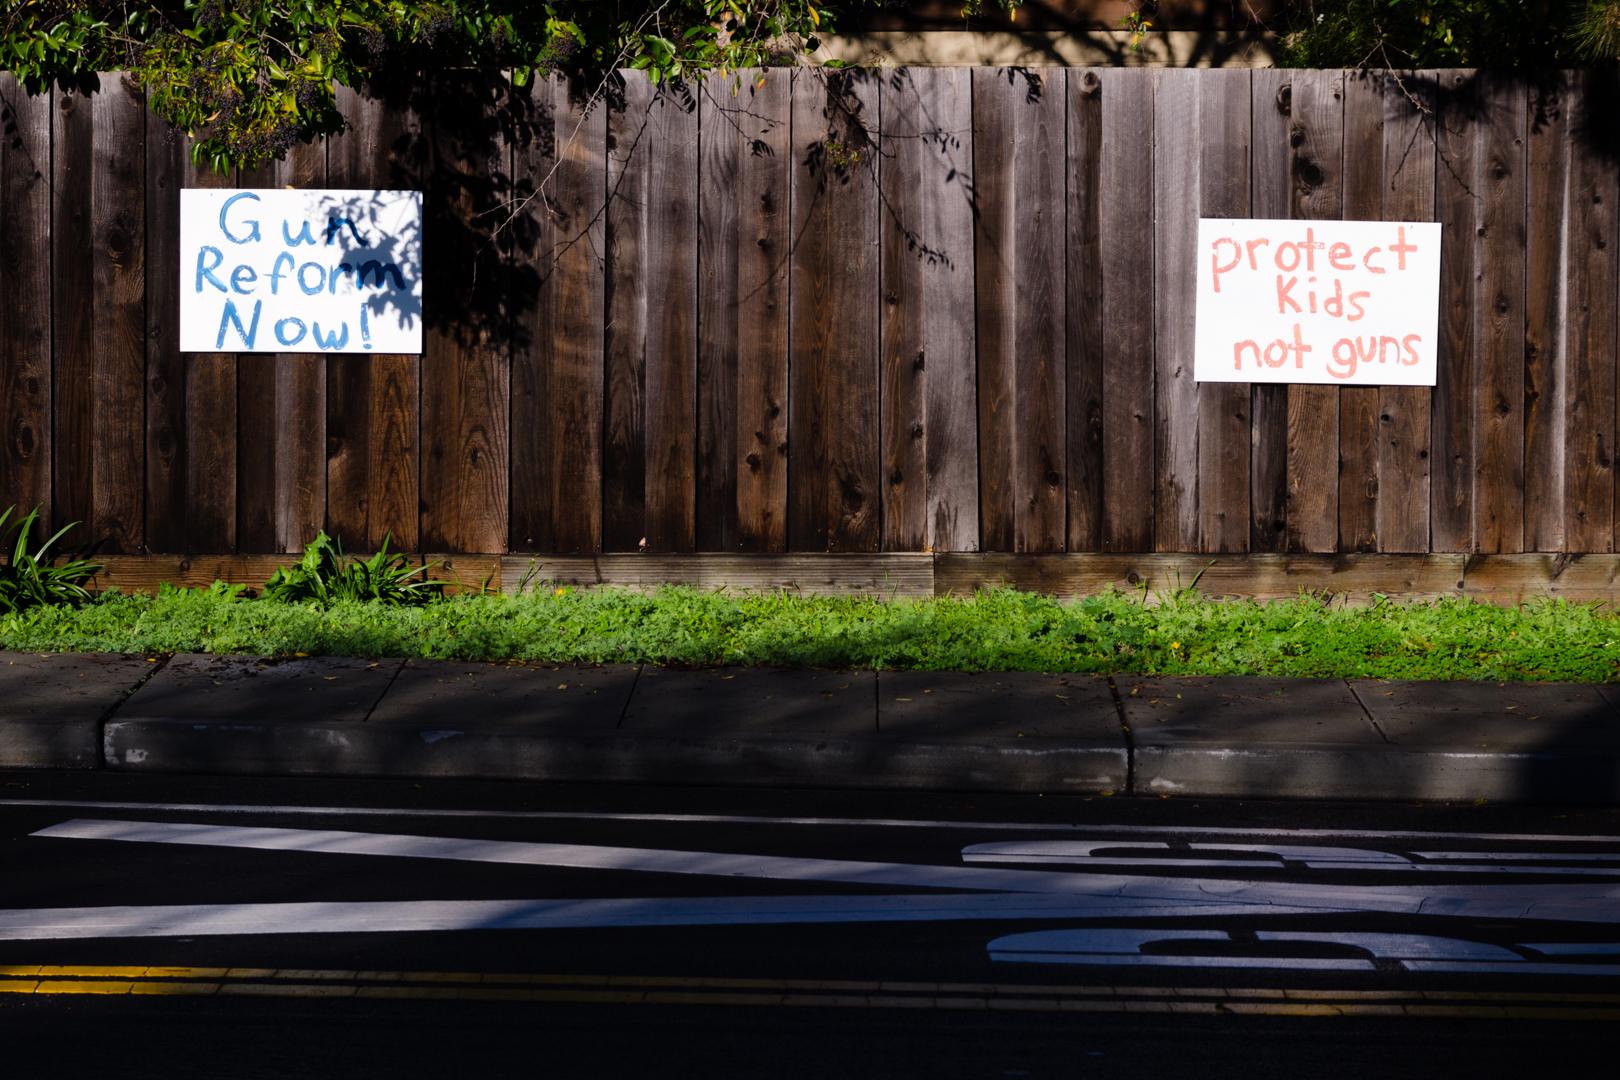 Gun
Reform
Now!
protect
Kids
not guns